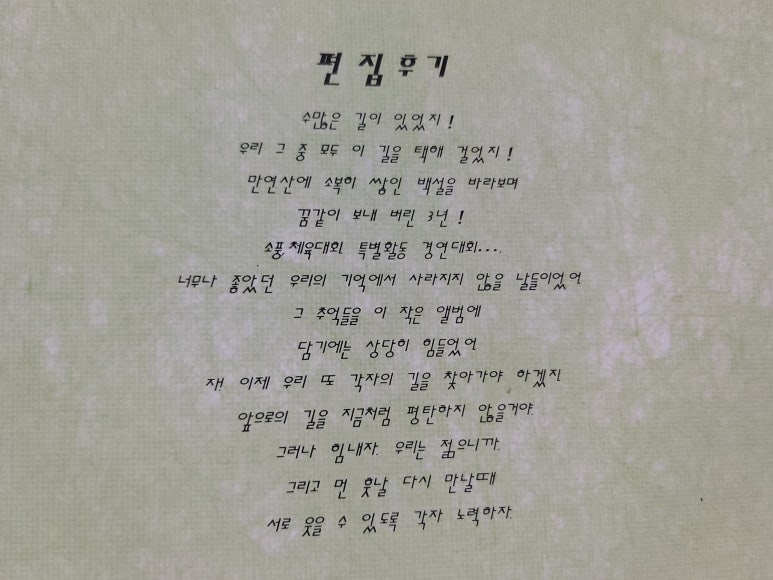 편집후기
수많은 길이 있었지!
우리 그 중 모두 이 길을 택해 걸었지!
만연산에 소복히 쌓인 백설을 바라보며
꿈같이 보내 버린 3년!
소풍 체육대회 특별활동 경연대회....
너무나 좋았던 우리의 기억에서 사라지지 않을 날들이었어
그 추억들을 이 작은 앨범에
담기에는 상당히 힘들었어
자! 이제 우리 또 각자의 길을 찾아가야 하겠지
앞으로의 길을 지금처럼 평탄하지 않을거야.
그러나 힘내자. 우리는 젊으니까.
그리고 먼 훗날 다시 만날때
서로 웃을 수 있도록 각자 노력하자.